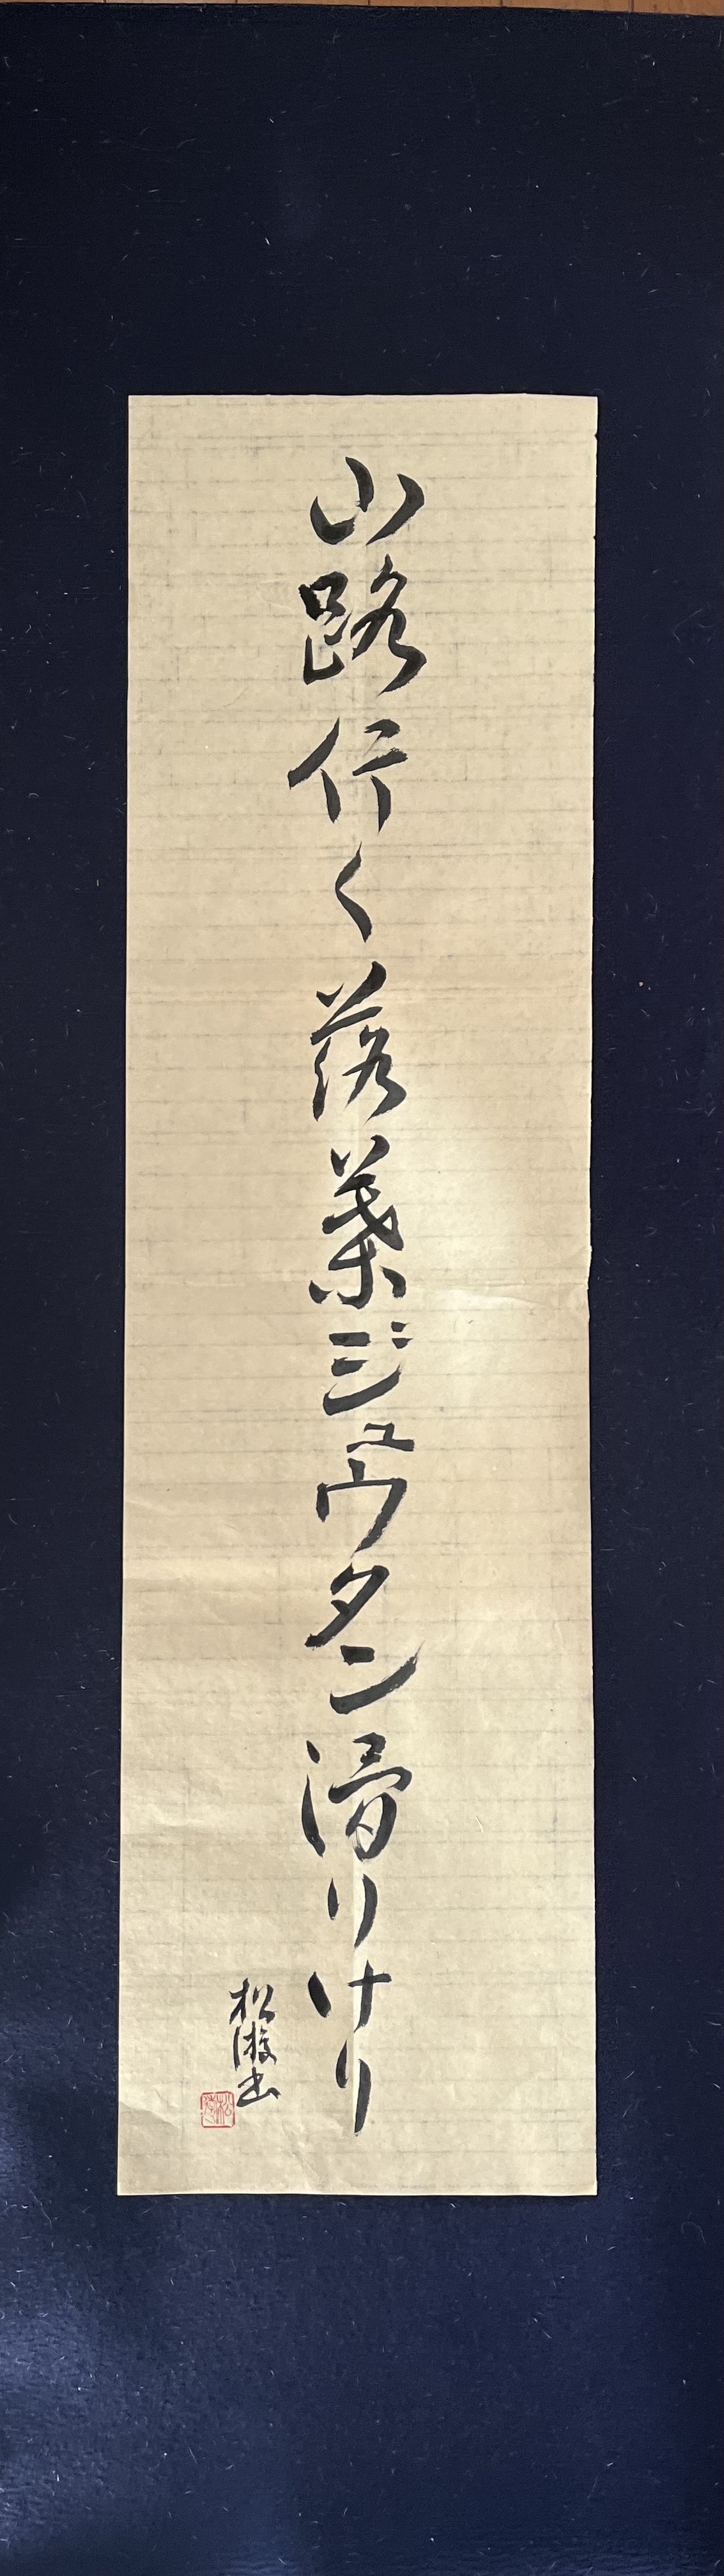 山路行く落葉ジュウタン滑りけり
松